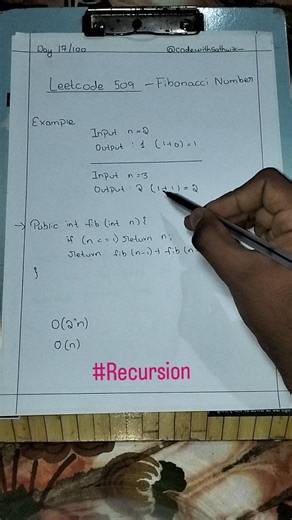 Day 17/100 @codewithsathwik
Leetcode 509 - Fibonacci Number
Example
Input n=2
Output : 1 (1+0)=1
Input n=3
Output : 2 (1+1)=2
→ Public int fib (int n) {
if (n <= 1) return n;
return fib (n-1) + fib (n
}
O(2^n)
O(n)
#Recursion